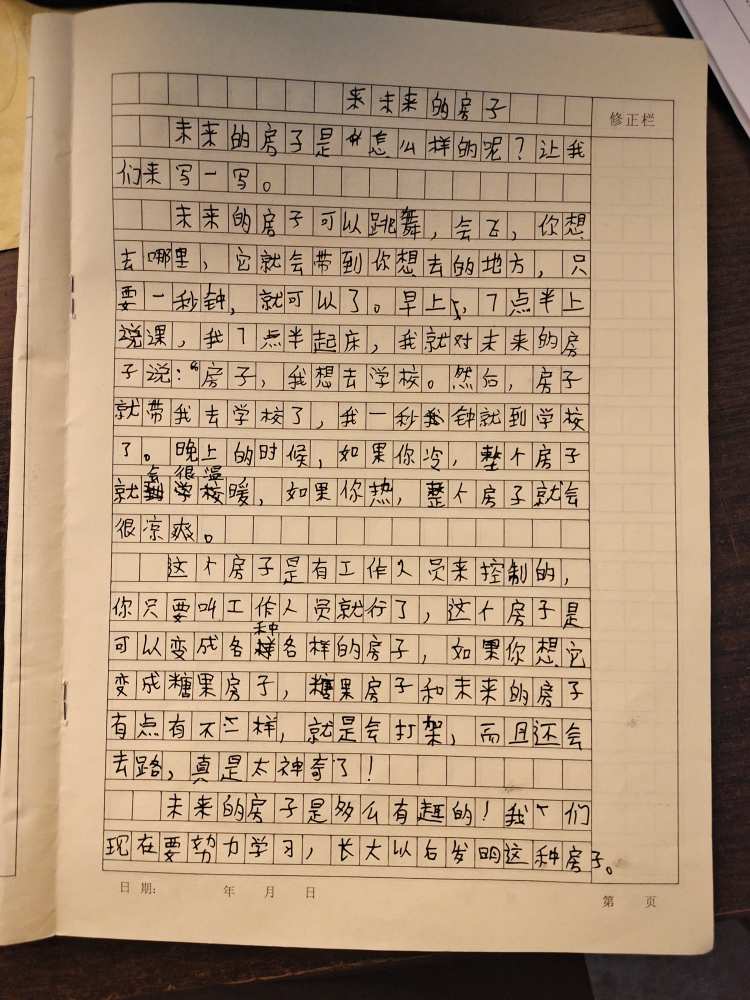 未来的房子
修正栏
未来的房子是怎么样的呢？让我
们来写一写。
未来的房子可以跳舞，会飞，你想
去哪里，它就会带到你想去的地方，只
要一秒钟，就可以了。早上，7点半上
说课，我7点半起床，我就对未来的房
子说：“房子，我想去学校。然后，房子
就带我去学校了，我一秒钟就到学校
了。晚上的时候，如果你冷，整个房子
就会很温暖，如果你热，整个房子就会
很凉爽。
这个房子是有工作人员来控制的，
你只要叫工作人员就行了，这个房子是
可以变成各种各样的房子，如果你想它
变成糖果房子，糖果房子和未来的房子
有点有不一样，就是会打架，而且还会
去路，真是太神奇了！
未来的房子是多么有趣的！我们
现在要努力学习，长大以后发明这种房子。
日期： 年 月 日
第 页